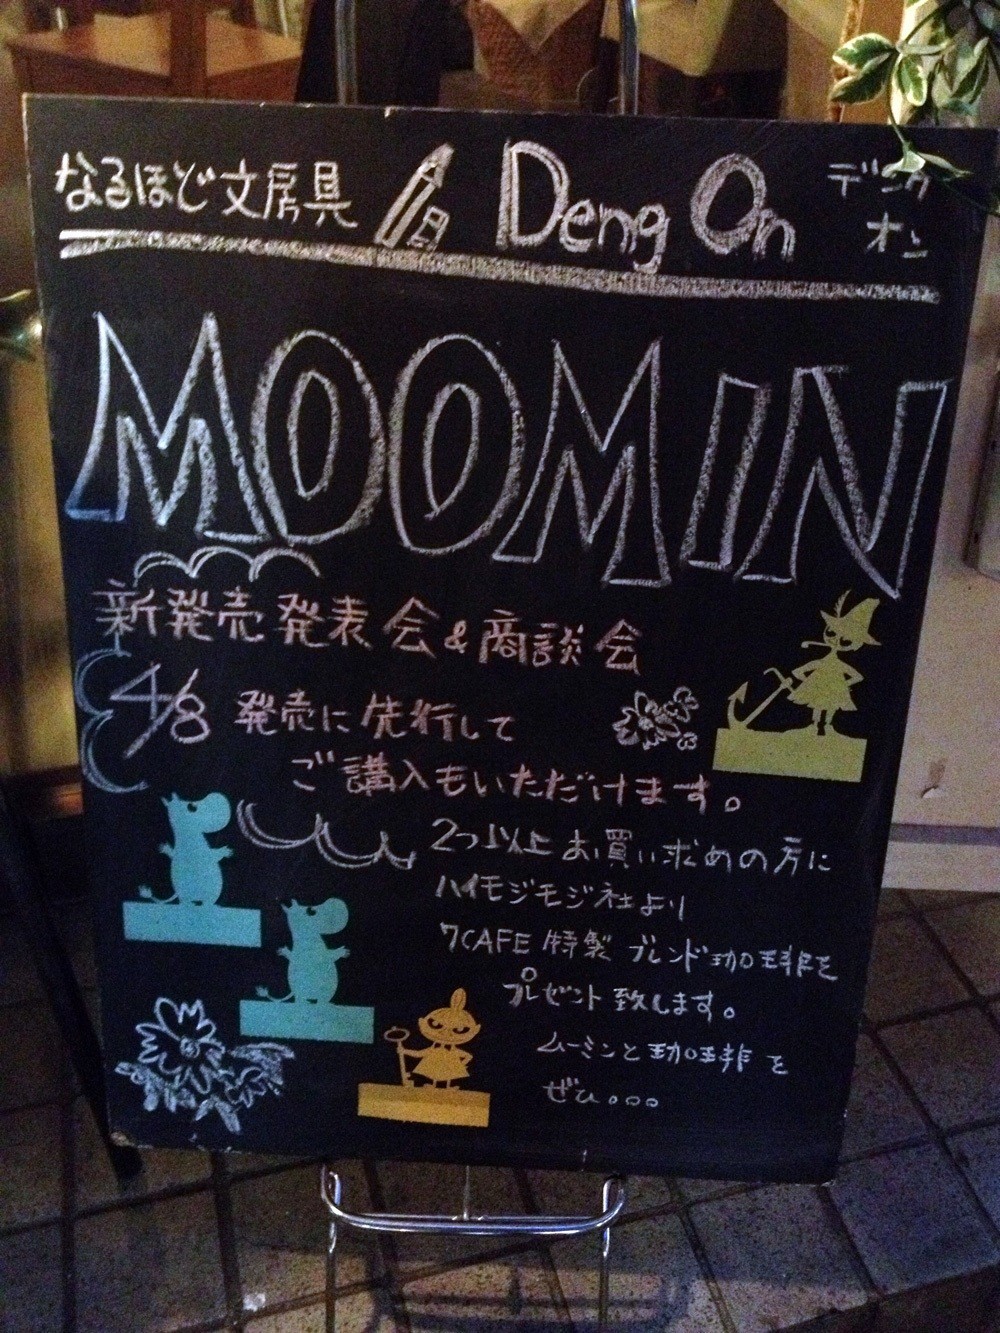 なるほど文房具 Deng On デング オン
MOOMIN
新発売発表会&商談会
4/8 発売に先行して
ご講入もいただけます。
2つ以上お買い求めの方に
ハイモジモジ社より
7CAFE特製ブレンド珈琲を
プレゼント致します。
ムーミンと珈琲を
ぜひ。。。